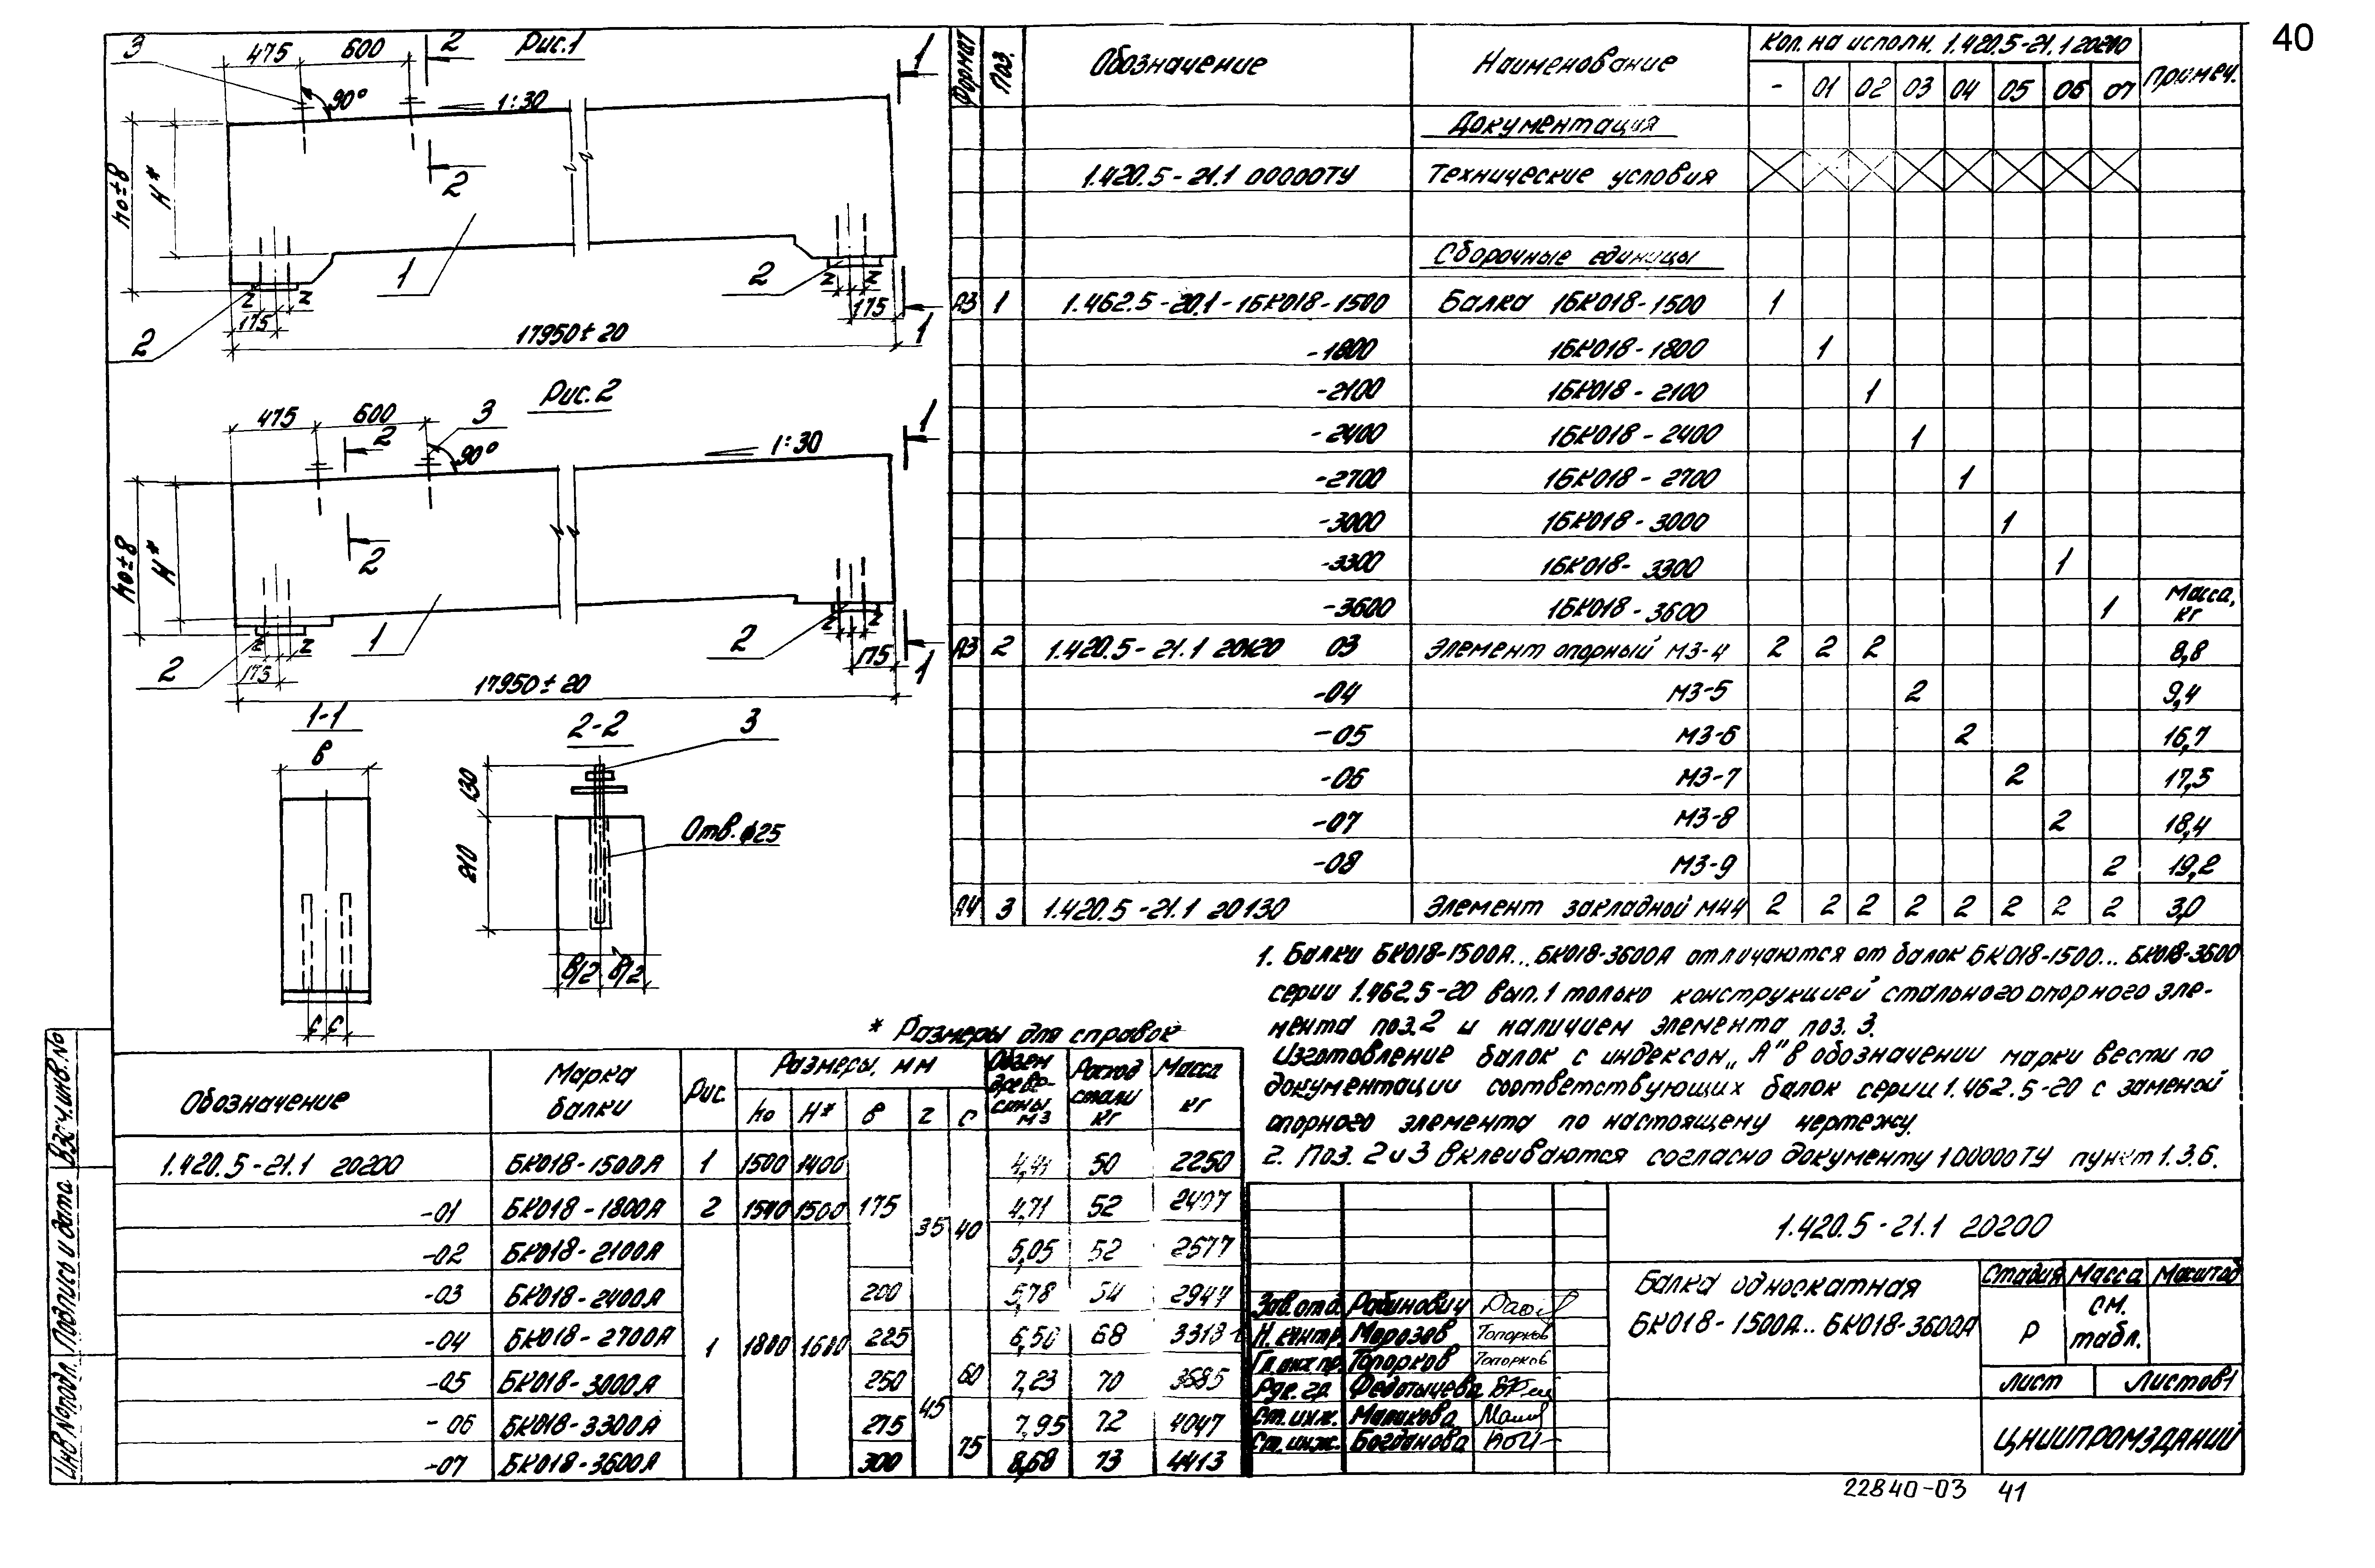 40
3
475
600
2
Рис.1
1
90°
1:30
h0±8
H*
2
1
2
z
z
z
z
175
175
2
17950±20
1
Рис.2
475
600
3
2
1
90°
1:30
h0±8
H*
2
1
2
z
z
z
z
175
175
2
17950±20
1
1-1
в
2-2
3
130
210
Отв.ф25
в/2 в/2
с с
Формат Поз. Обозначение Наименование Кол. на исполн. 1.420.5-21.1 20200 Примеч.
- 01 02 03 04 05 06 07
Документация
1.420.5-21.1 00000ТУ Технические условия
Сборочные единицы
А3 1 1.462.5-20.1-1БК018-1500 Балка 1БК018-1500 1
-1800 1БК018-1800 1
-2100 1БК018-2100 1
-2400 1БК018-2400 1
-2700 1БК018-2700 1
-3000 1БК018-3000 1
-3300 1БК018-3300 1
-3600 1БК018-3600 1 Масса, кг
А3 2 1.420.5-21.1 20120 03 Элемент опорный М3-4 2 2 2 8,8
-04 М3-5 2 9,4
-05 М3-6 2 16,7
-06 М3-7 2 17,5
-07 М3-8 2 18,4
-08 М3-9 2 19,2
А4 3 1.420.5-21.1 20130 Элемент закладной М44 2 2 2 2 2 2 2 2 3,0
1. Балки БК018-1500А... БК018-3600А отличаются от балок БК018-1500... БК018-3600
серии 1.462.5-20 вып.1 только конструкцией стального опорного эле-
мента поз.2 и наличием элемента поз. 3.
Изготовление балок с индексом „А" в обозначении марки вести по
документации соответствующих балок серии 1.462.5-20 с заменой
опорного элемента по настоящему чертежу.
2. Поз. 2 и 3 вклеиваются согласно документу 100000ТУ пункт 1.3.6.
* Размеры для справок
Обозначение Марка балки Рис. Размеры, мм Объем древе-сины м3 Расход стали кг Масса кг
h0 H* в z с
1.420.5-21.1 20200 БК018-1500А 1 1500 1400 4,41 50 2250
-01 БК018-1800А 2 1500 175 35 40 4,71 52 2407
-02 БК018-2100А 5,05 52 2577
-03 БК018-2400А 200 5,78 54 2947
-04 БК018-2700А 1 1800 225 6,50 68 3318
-05 БК018-3000А 250 60 7,23 70 3685
-06 БК018-3300А 275 45 7,95 72 4047
-07 БК018-3600А 300 75 8,68 73 4413
Инв.№подл. Подпись и дата Взам.инв.№
1.420.5-21.1 20200
Балка односкатная
БК018-1500А... БК018-3600А
Стадия Масса Масштаб
Р см. табл.
Лист Листов 1
ЦНИИПРОМЗДАНИЙ
Зав.отд. Рабинович
Н.контр. Морозов Топорков
Гл.инж.пр. Топорков Топорков
Рук.гр.
Ст.инж. Маликова
Ст.инж. Богданова
22840-03 41